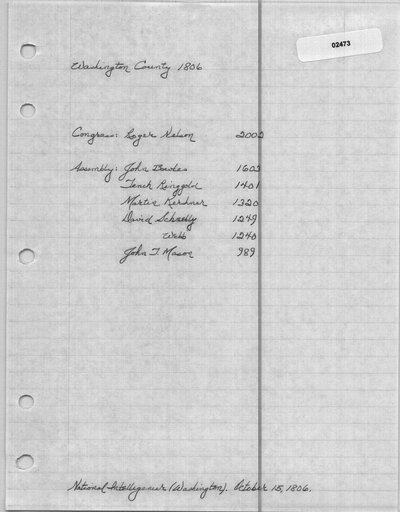 02473
Washington County 1806
Congress: Roger Nelson 2002
Assembly: John Bowles 1602
Tench Ringgold 1401
Martin Kershner 1320
David Schnebly 1249
Webb 1240
John T. Mason 989
National Intelligencer (Washington). October 15, 1806.